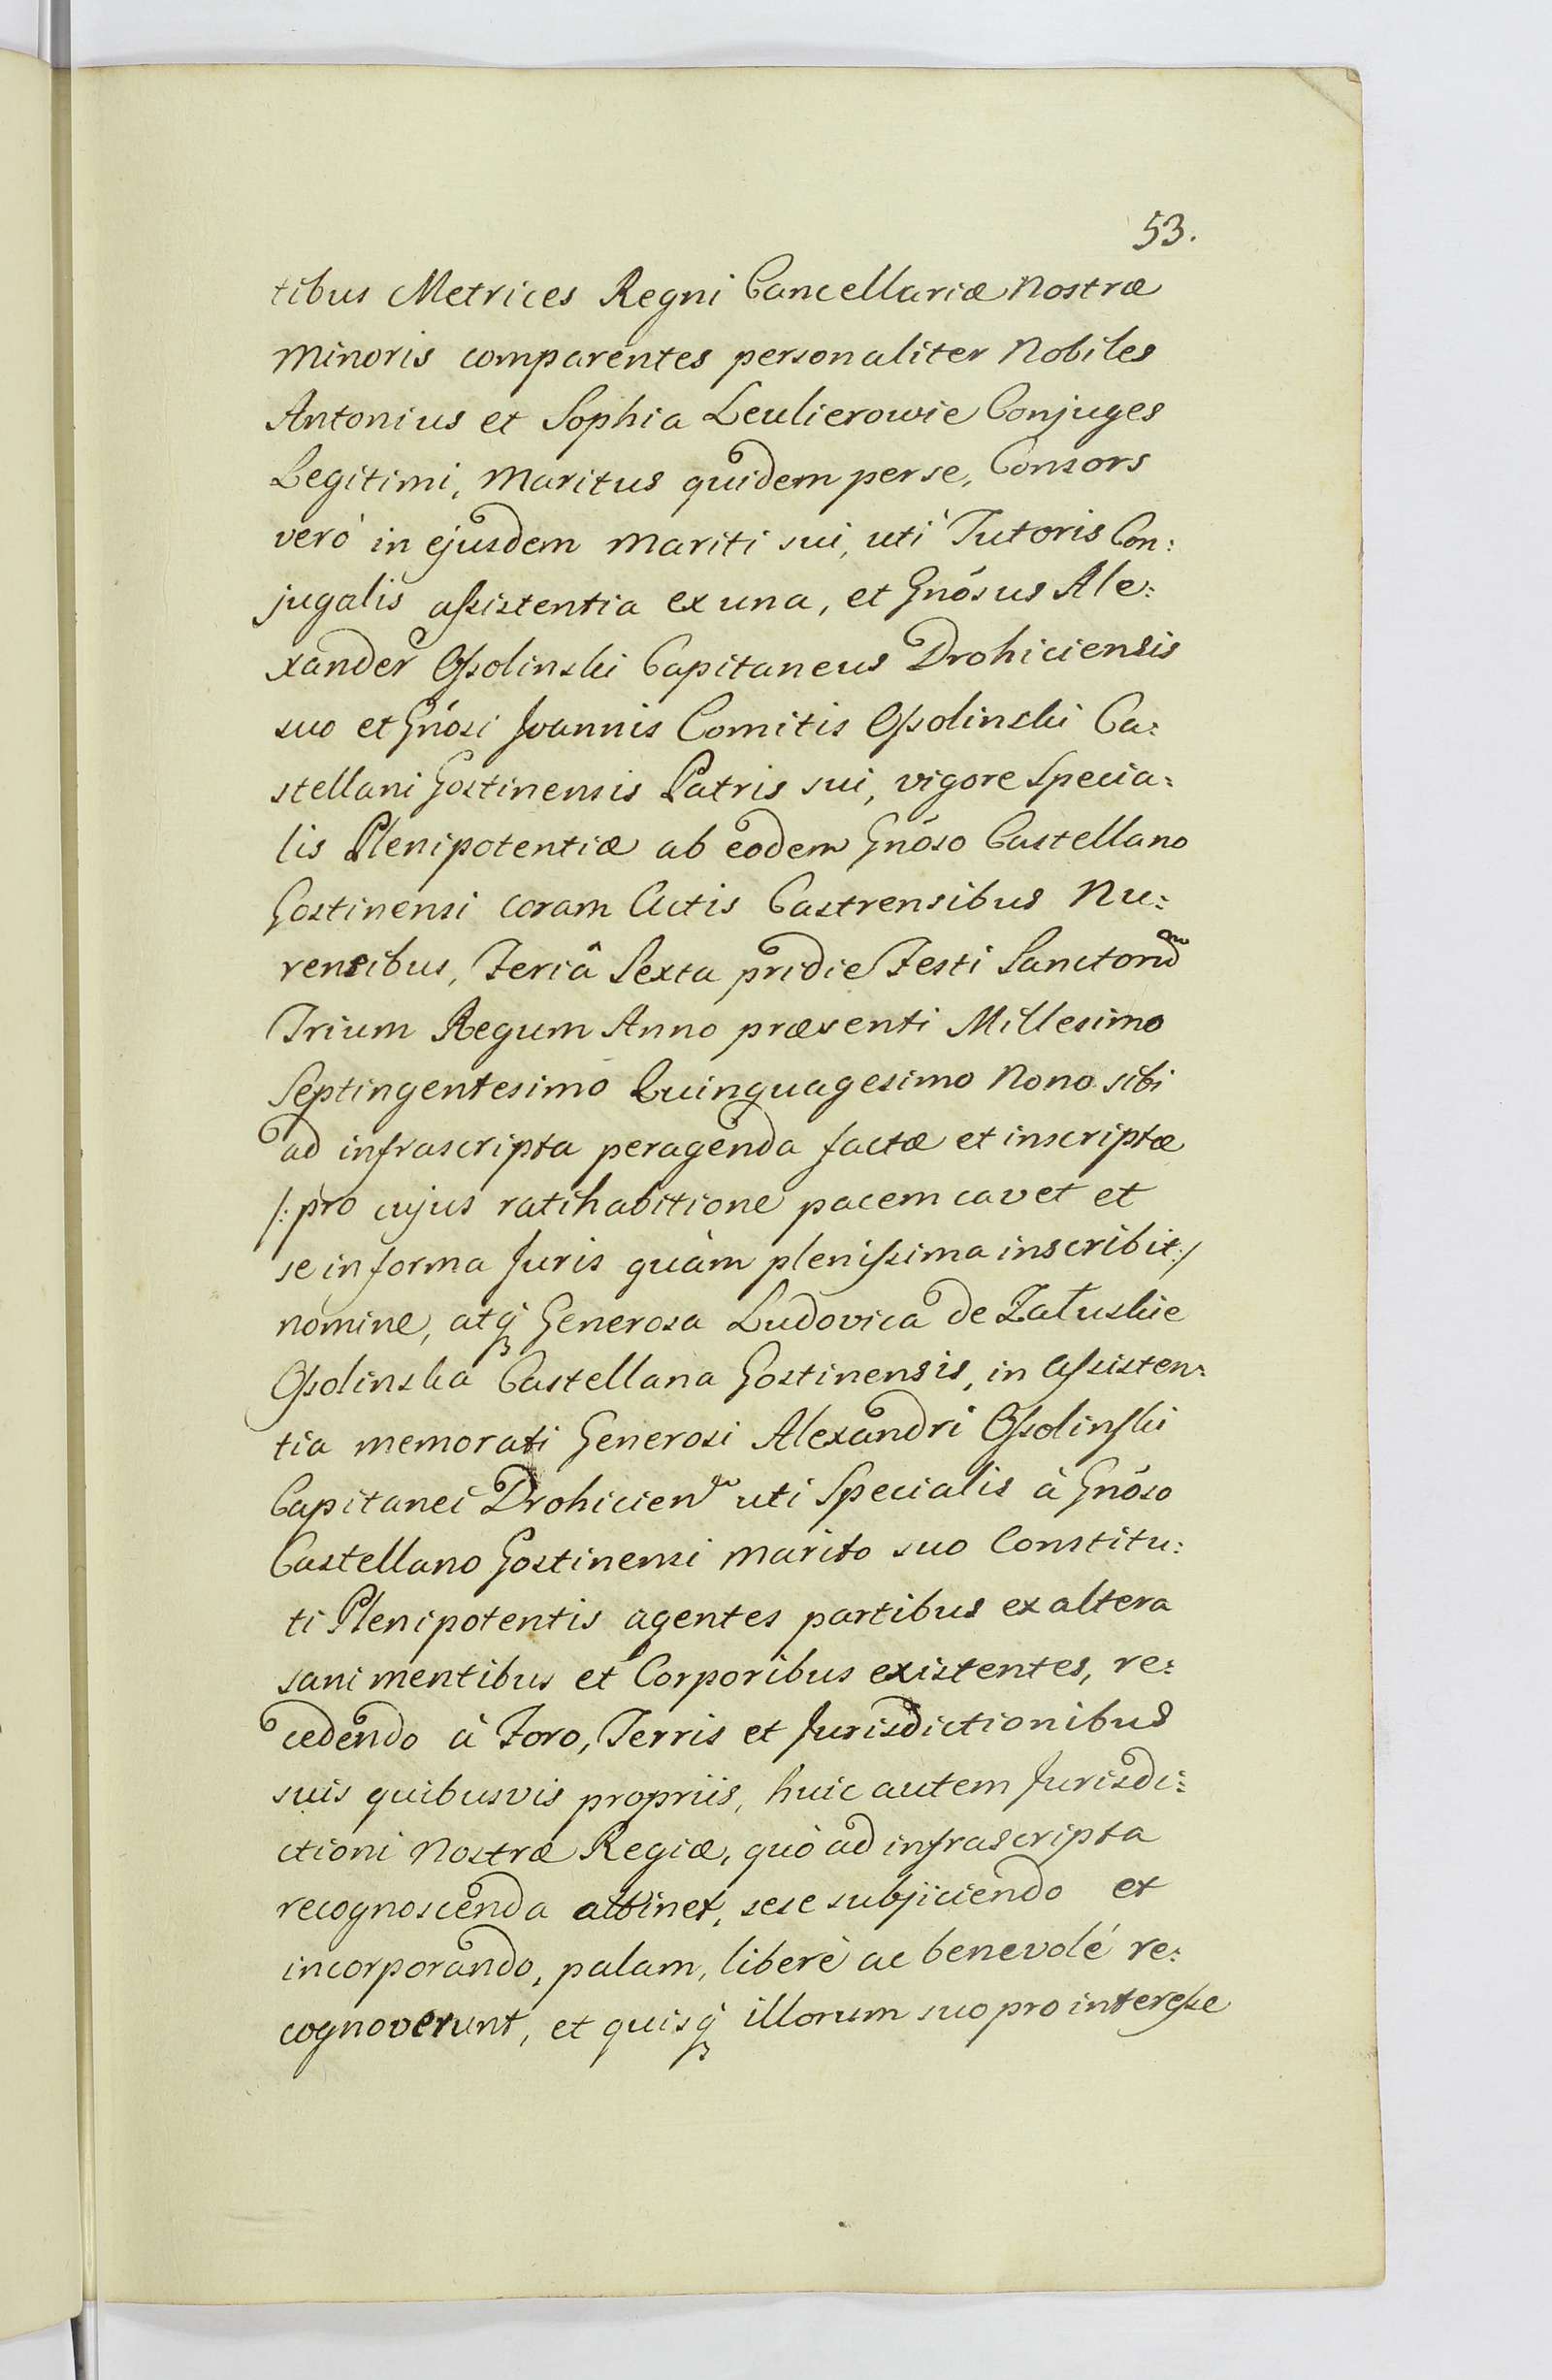 53.
tibus Metrices Regni Cancellariæ Nostræ
Minoris comparentes personaliter Nobiles
Antonius et Sophia Leulierowie Conjuges
Legitimi, Maritus quidem per se, Consors
verò in ejusdem Mariti sui, uti Tutoris Con:
jugalis assistentia ex una, et Gnősus Ale:
xander Ossolinski Capitaneus Drohiciensis
suo et Gnősi Joannis Comitis Ossolinski Ca:
stellani Gostinensis Patris sui, vigore Specia:
lis Plenipotentiæ ab eodem Gnőso Castellano
Gostinensi coram Actis Castrensibus Nu:
rensibus, Feriâ Sexta pridie Festi Sanctorũ
Trium Regum Anno præsenti Millesimo
Septingentesimo Quinquagesimo Nono sibi
ad infrascripta peragenda factæ et inscriptæ
/: pro cujus ratihabitione pacem cavet et
se in forma Juris quàm plenissima inscribit :/
nomine, atq́ꝫ Generosa Ludovica de Załuskie
Ossolinska Castellana Gostinensis, in Assisten:
tia memorati Generosi Alexandri Ossolinski
Capitanei Drohicien uti Specialis à Gnőso
Castellano Gostinensi Marito suo Constitu:
ti Plenipotentis agentes partibus ex altera
sani mentibus et Corporibus existentes, re:
cedendo à Foro, Terris et Jurisdictionibus
suis quibusvis propriis, huic autem Jurisdi:
ctioni Nostræ Regiæ, quò ad infrascripta
recognoscenda attinet, sese subjiciendo et
incorporando, palam, liberè ac benevolé re:
cognoverunt, et quisq́ꝫ illorum suo pro interesse